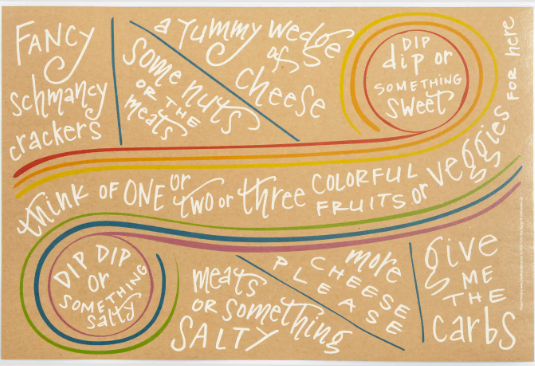 FANCY
schmancy
crackers
a yummy wedge
of
cheese
some nuts
OR THE
meats
DIP
dip or
SOMETHING
sweet
think OF ONE or two or three COLORFUL
FRUITS or veggies FOR here
DIP DIP
or
SOMETHING
salty
meats
OR something
SALTY
more
CHEESE
PLEASE
give
ME
THE
carbs